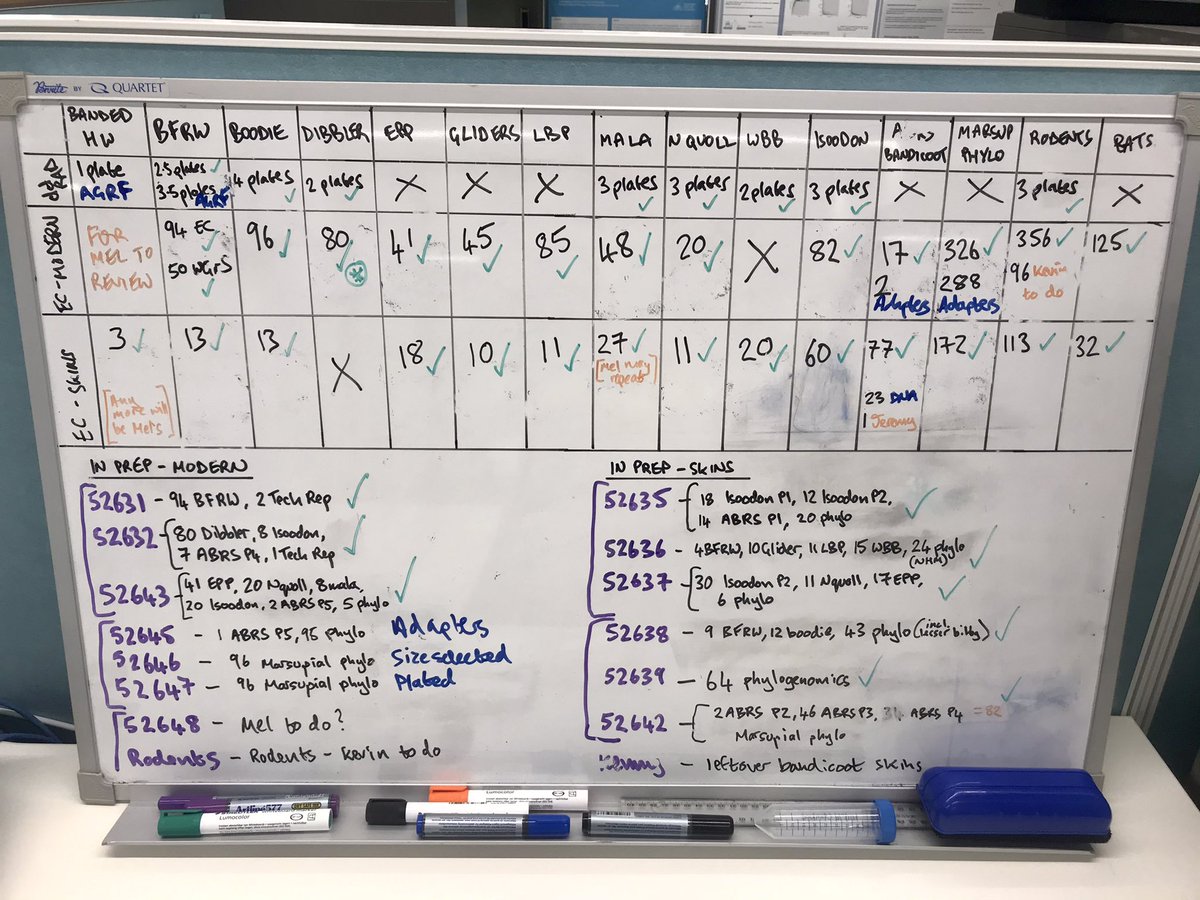 BY QUARTET
BANDED HW
BFRW
BOODIE
DIBBLER
EPP
GLIDERS
LBP
MALA
N QUOLL
WBB
ISOODON
BANDICOOT
MARSUP PHYLO
RODENTS
BATS
ddRAD
1 plate AGRF
2.5 plates ✓
3.5 plates AGRF
4 plates ✓
2 plates ✓
X
X
X
3 plates ✓
3 plates ✓
2 plates ✓
3 plates ✓
X
X
3 plates ✓
X
EC-MODERN
FOR MEL TO REVIEW
94 EC ✓
50 WGrS ✓
96 ✓
80 ✓ *
41 ✓
45 ✓
85 ✓
48 ✓
20 ✓
X
82 ✓
17 ✓
2 Adapters
326 ✓
288 Adapters
356 ✓
96 Kevin to do
125 ✓
EC - SKINS
3 ✓
[Any more will be Mel's]
13 ✓
13 ✓
X
18 ✓
10 ✓
11 ✓
27 ✓
[Mel may repeat]
11 ✓
20 ✓
60 ✓
77 ✓
23 DNA
1 Jeremy
172 ✓
113 ✓
32 ✓
IN PREP - MODERN
52631 - 94 BFRW, 2 Tech Rep ✓
52632 - 80 Dibbler, 8 Isoodon,
7 ABRS P4, 1 Tech Rep ✓
52643 41 EPP, 20 Nquoll, 8 mala,
20 Isoodon, 2 ABRS P5, 5 phylo ✓
52645 - 1 ABRS P5, 95 phylo Adapters
52646 - 96 Marsupial phylo Size selected
52647 - 96 Marsupial phylo Plated
52648 - Mel to do?
Rodents - Rodents - Kevin to do
IN PREP - SKINS
52635 - 18 Isoodon P1, 12 Isoodon P2,
14 ABRS P1, 20 phylo ✓
52636 - 4 BFRW, 10 Glider, 11 LBP, 15 WBB, 24 phylo ✓
(NHM)
52637 - 30 Isoodon P2, 11 Nquoll, 17 EPP,
6 phylo ✓
52638 - 9 BFRW, 12 boodie, 43 phylo (incl. lesser bilby) ✓
52639 - 64 phylogenomics ✓
52642 - 2 ABRS P2, 46 ABRS P3, ABRS P4 = 82 ✓
Marsupial phylo
- leftover bandicoot skins
Artline 577
Lumocolor
Lumocolor